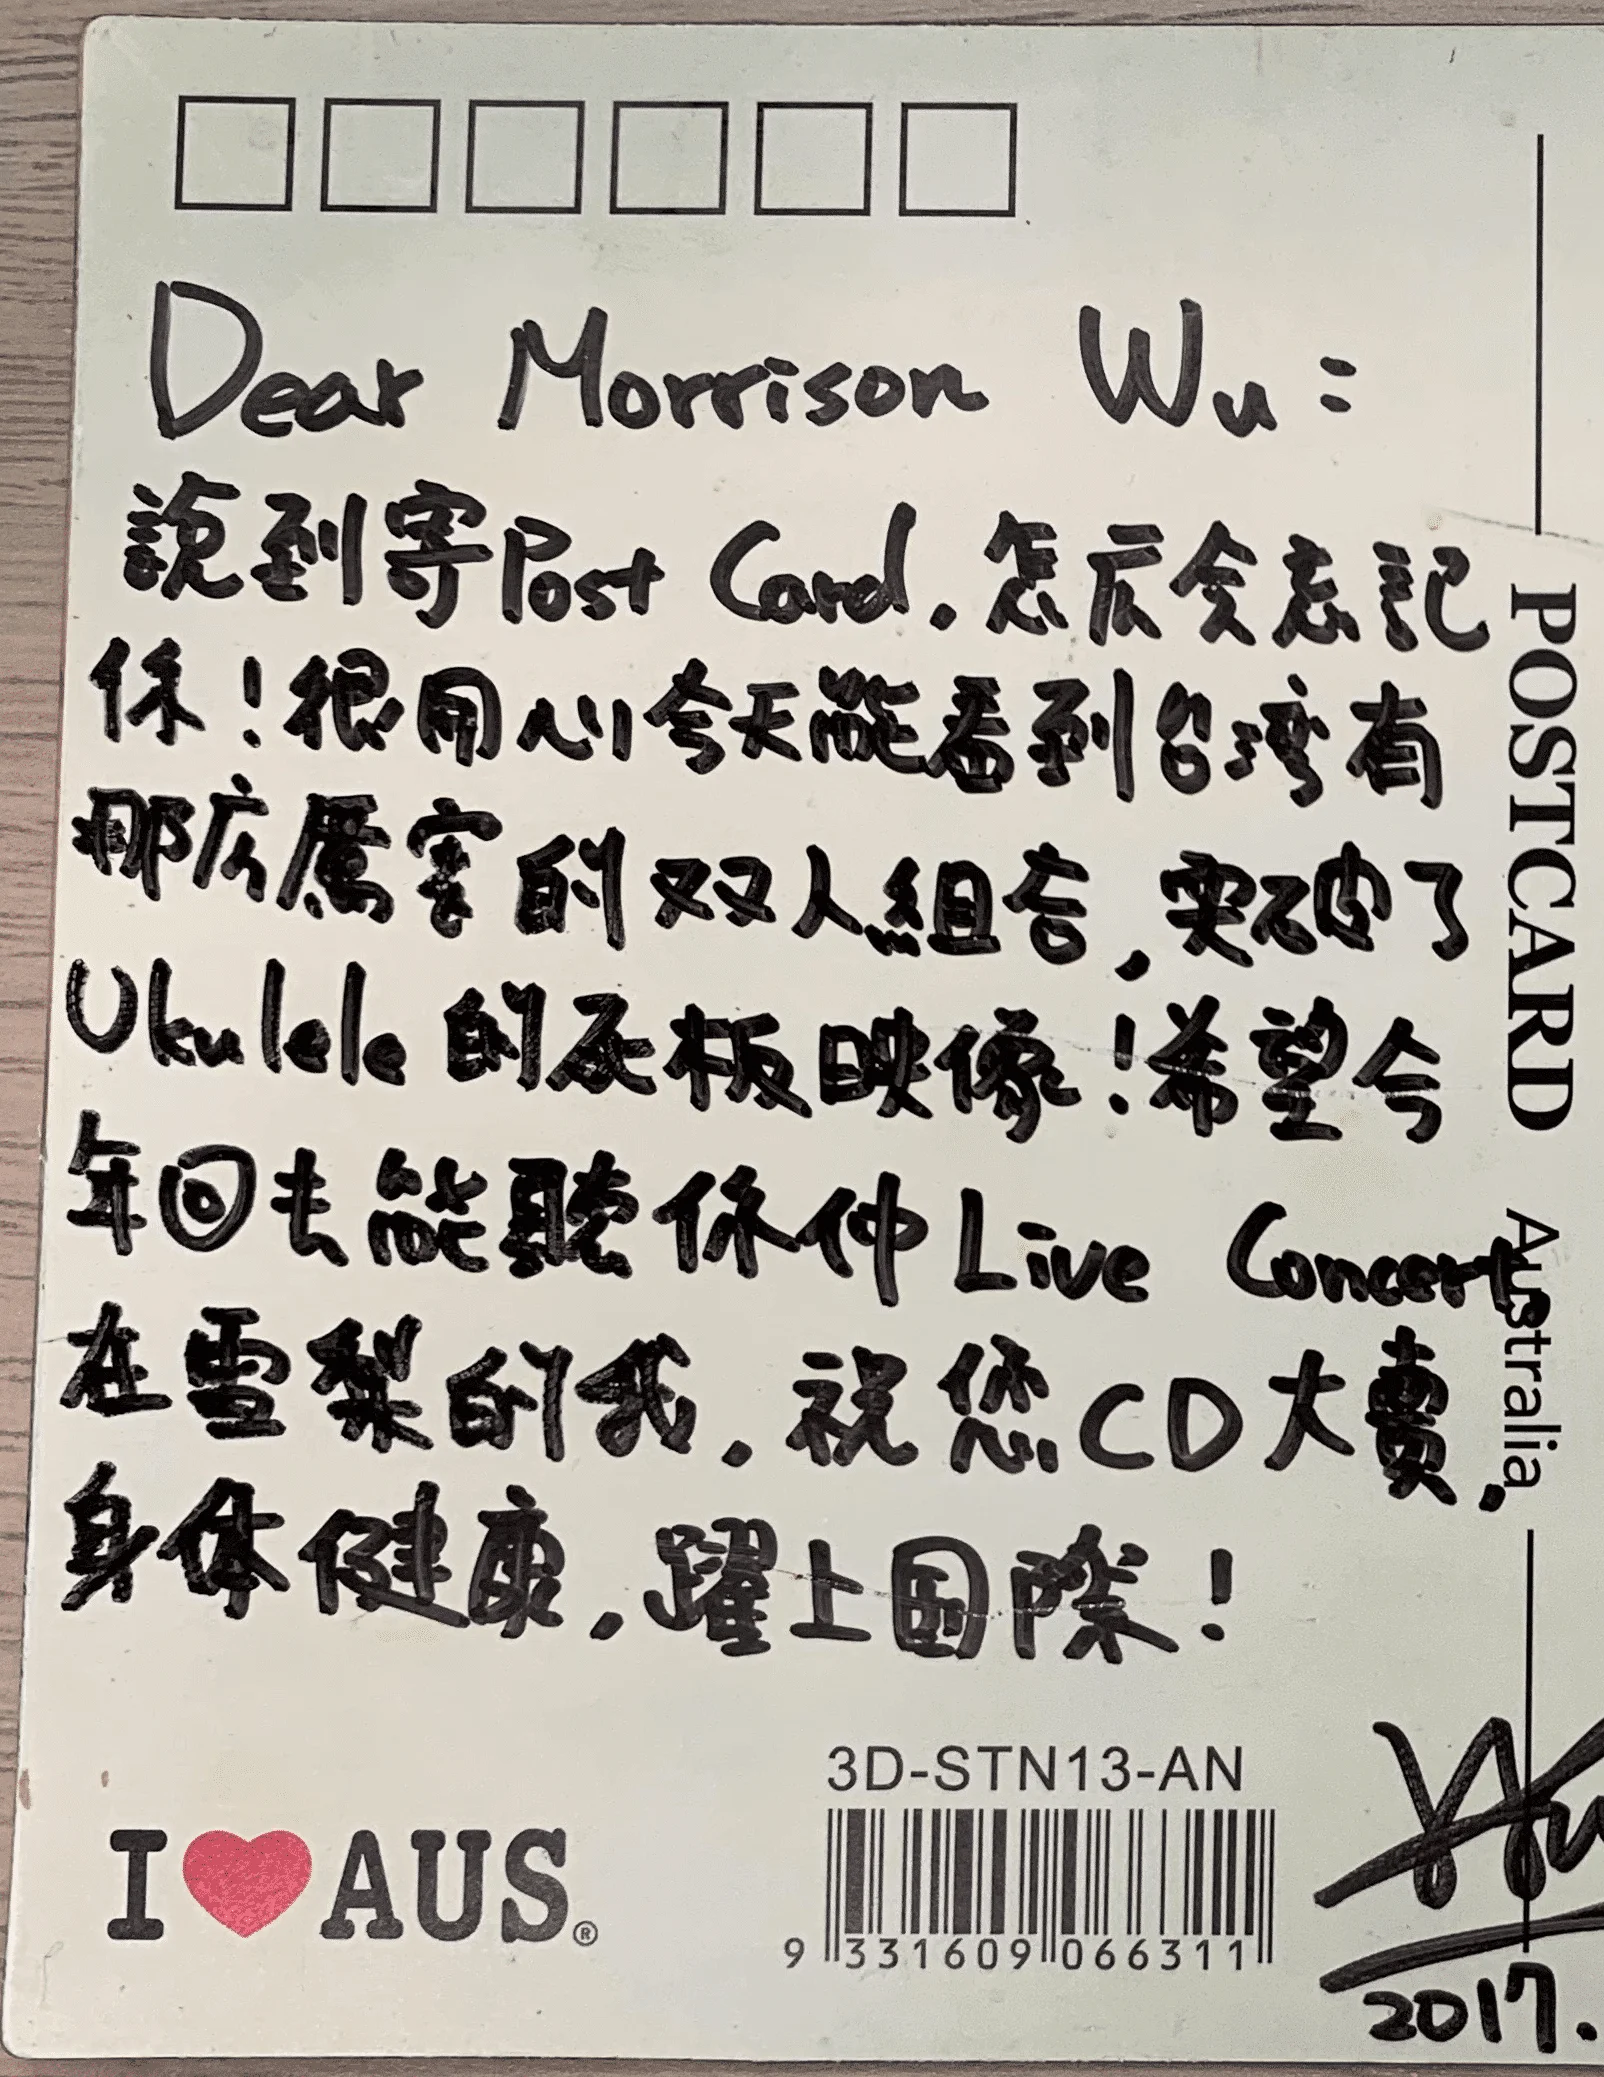 Dear Morrison Wu:
說到寄Post Card. 怎広会忘記
你!很用心 今天能看到台湾有
那広厲害的双人組合,突破了
Ukulele的灰板映像!希望今
年回去能聽你们Live Concert.
在雪梨的我. 祝您CD大賣,
身体健康,躍上国際!
POSTCARD Australia
3D-STN13-AN
I AUS®
9 331609 066311
2017.